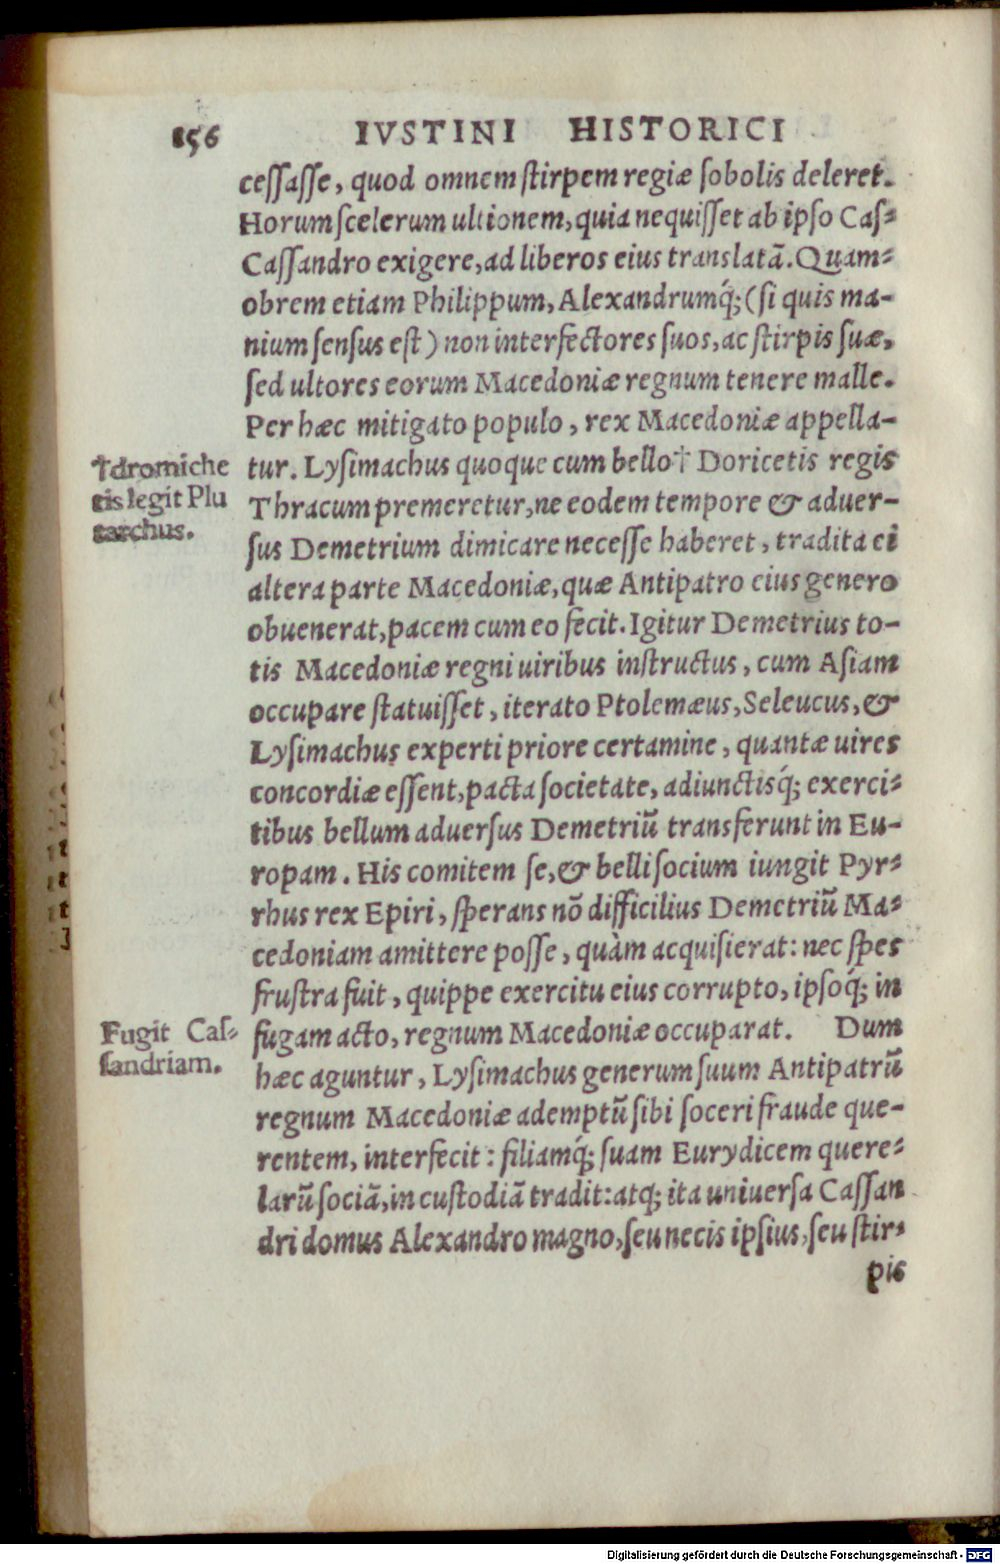 156 IVSTINI HISTORICI
ceſſaſſe, quod omnem ſtirpem regiæ ſobolis deleret.
Horum ſcelerum ultionem, quia nequiſſet ab ipſo Caſ-
Caſſandro exigere, ad liberos eius translatā. Quam-
obrem etiam Philippum, Alexandrumq́; (ſi quis ma-
nium ſenſus eſt) non interfectores ſuos, ac ſtirpis ſuæ,
ſed ultores eorum Macedoniæ regnum tenere malle.
Per hæc mitigato populo, rex Macedoniæ appella-
tur. Lyſimachus quoque cum bello † Doricetis regis
Thracum premeretur, ne eodem tempore & aduer-
ſus Demetrium dimicare neceſſe haberet, tradita ei
altera parte Macedoniæ, quæ Antipatro eius genero
obuenerat, pacem cum eo fecit. Igitur Demetrius to-
tis Macedoniæ regni uiribus inſtructus, cum Aſiam
occupare ſtatuiſſet, iterato Ptolemæus, Seleucus, &
Lyſimachus experti priore certamine, quantæ uires
concordiæ eſſent, pacta ſocietate, adiunctisq́; exerci-
tibus bellum aduerſus Demetriū transferunt in Eu-
ropam. His comitem ſe, & belli ſocium iungit Pyr-
rhus rex Epiri, ſperans nō difficilius Demetriū Ma-
cedoniam amittere poſſe, quàm acquiſierat: nec ſpes
fruſtra fuit, quippe exercitu eius corrupto, ipſoq́; in
fugam acto, regnum Macedoniæ occuparat. Dum
hæc aguntur, Lyſimachus generum ſuum Antipatrū
regnum Macedoniæ ademptū ſibi ſoceri fraude que-
rentem, interfecit: filiamq́; ſuam Eurydicem quere-
larū ſociā, in cuſtodiā tradit: atq; ita uniuerſa Caſſan
dri domus Alexandro magno, ſeu necis ipſius, ſeu ſtir-
pis
†dromiche
tis legit Plu
tarchus.
Fugit Caſ-
ſandriam.
Digitalisierung gefördert durch die Deutsche Forschungsgemeinschaft - DFG